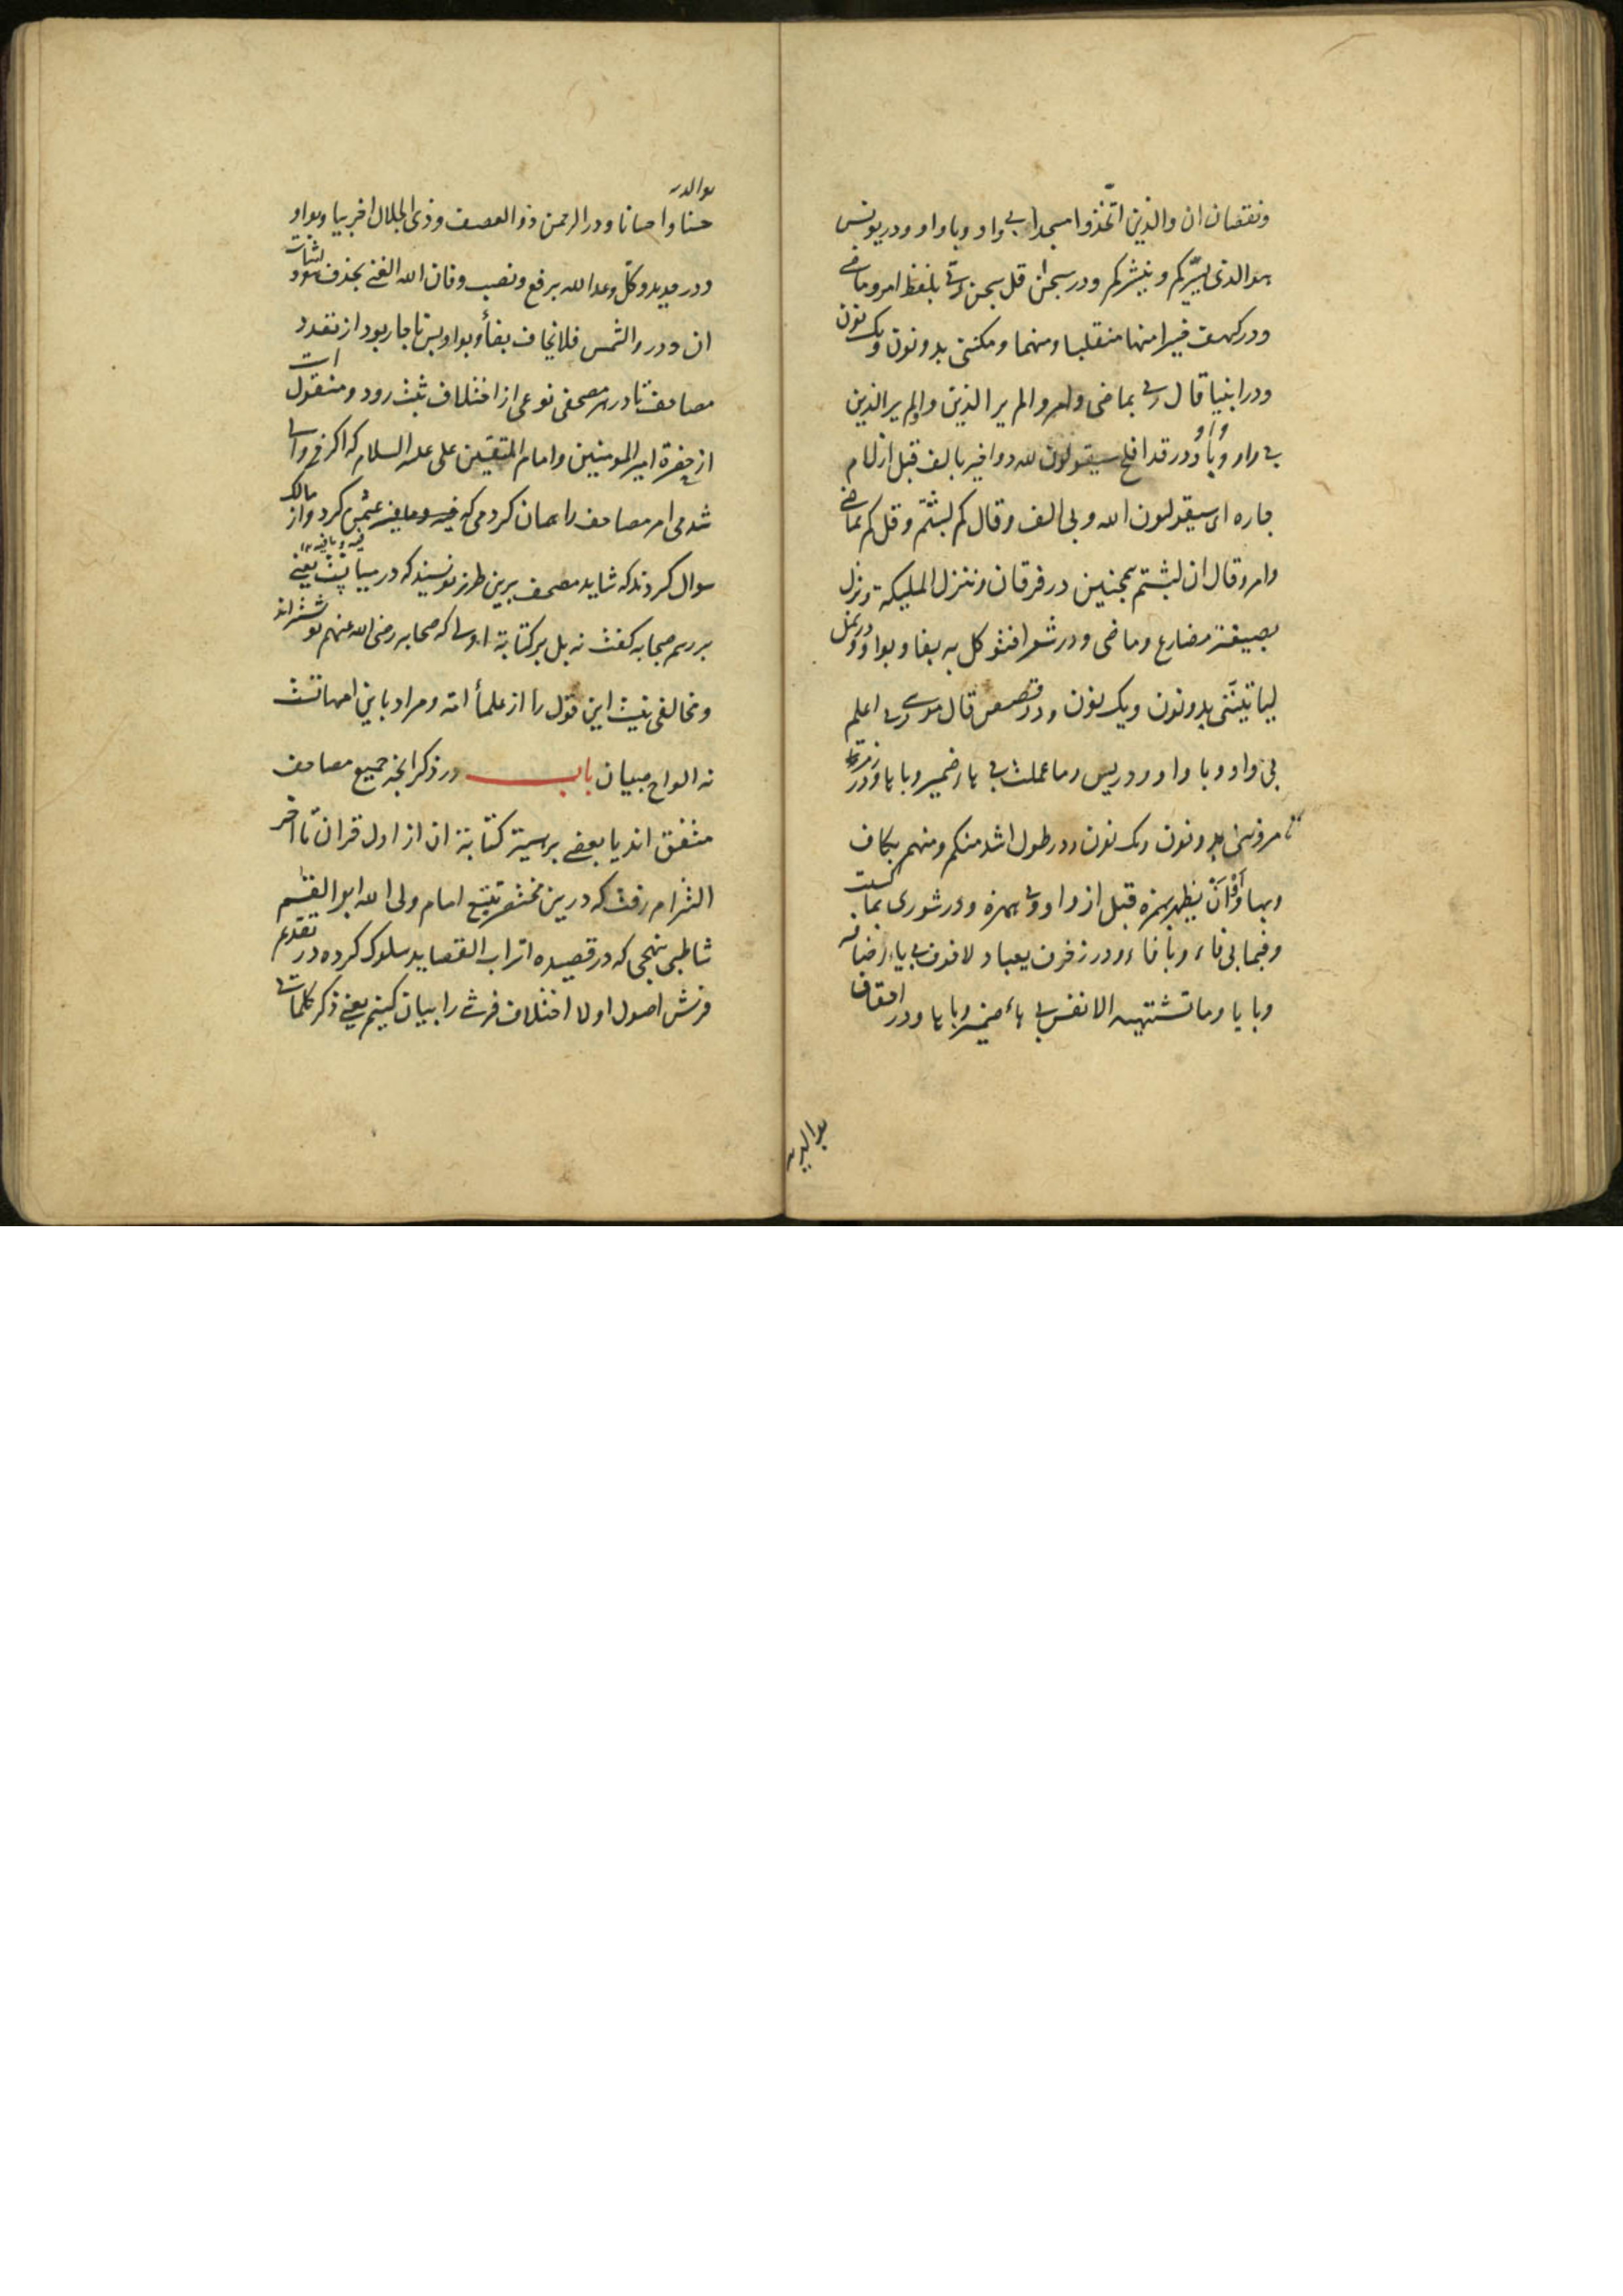 ونقصان ان والذین اتخذوا مسجدا بی واو وبا واو ودر یونس
هوالذی یسیرکم وینشرکم ودر سبحان قل سبحن ربی بلفظ امر وماضی
ودر کهف خیرا منها منقلبا ومنهما ومکننی بدو نون ویک نون
ودر انبیا قال ربی بماضی وامر والم یر الذین واولم یر الذین
بی واو وبا واو ودر قد افلح سیقولون لله دو اخیر بالف قبل از لام
جاره ای سیقولون الله وبی الف وقال کم لبثتم وقل کم بماضی
وامر وقال ان لبثتم همچنین در فرقان وننزل الملیکة ونزل
بصیغه مضارع وماضی ودر شعرا فتوکل به بفا وبواو ودر نمل
لیاتیننی بدو نون ویک نون ودر قصص قال موسی ربی اعلم
بی واو وبا واو ودر یس وما عملت بی هاء ضمیر وبا ها ودر زمر
تامرونی بدو نون ویک نون ودر طول اشد منکم ومنهم بکاف
وبها واو ان یظهر بهمزه قبل از واو وبی همزه ودر شوری بما کسبت
وفبما بی فاء وبا فاء ودر زخرف یعباد لا خوف بی یاء اضافه
وبا یا وما تشتهیه الانفس بی هاء ضمیر وبا ها ودر احقاف
بوالدیه
بوالدیه
حسنا واحسانا ودر الرحمن ذو العصف وذی الجلال اخر بیا وبواو
ودر حدید وکل وعد الله برفع ونصب وفان الله الغنی بحذف هو واثبات
ان ودر والشمس فلا یخاف بفا وبواو پس ناچار بود از تعدد
مصاحف تا در هر مصحفی نوعی از اختلاف ثبت رود ومنقول است
از حضرة امیر المومنین وامام المتقین علی علیه السلام که اگر من والی
شدمی امر مصاحف را همان کردمی که عثمن کرد واز مالک
سوال کردند که شاید مصحف برین طرز نویسند که در میانست یعنی
بر رسم صحابه گفت نه بل بر کتابة اولی که صحابه رضی الله عنهم نوشته اند
ومخالفی نیست این قول را از علماء امة ومراد باین امهاتست
نه الواح صبیان باب در ذکر انچه جمیع مصاحف
متفق اند یا بعضی بر سمیة کتابة ان از اول قران تا اخر
التزام رفت که درین مختصر تتبع امام ولی الله ابو القسم
شاطبی بنهجی که در قصیده اتراب القصاید سلوک کرده در تقدیم
فرش اصول اولا اختلاف فرشی را بیان کنیم یعنی ذکر کلماتی